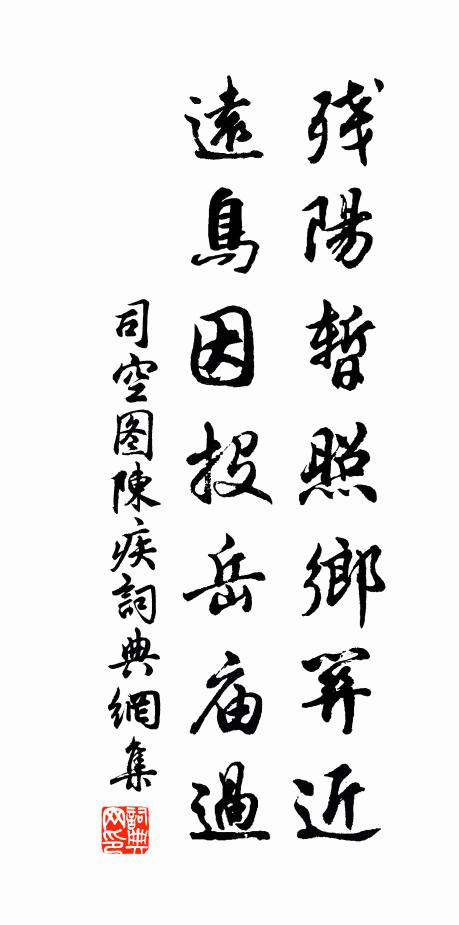 残陽暫照鄉關近
遠鳥因投岳庙過
司空图陳疾詞典網集
詞典网印